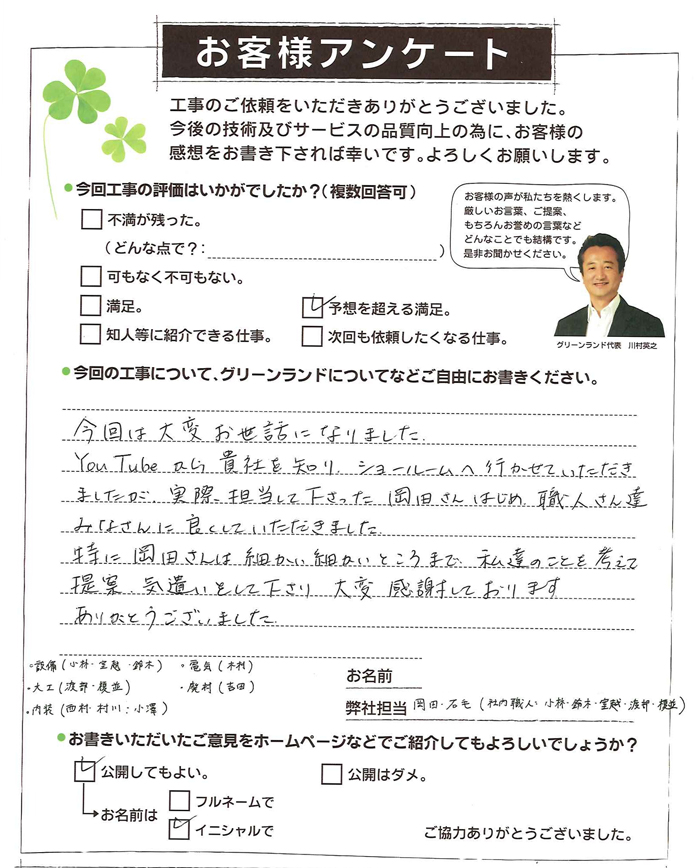 お客様アンケート
工事のご依頼をいただきありがとうございました。
今後の技術及びサービスの品質向上の為に、お客様の
感想をお書き下されば幸いです。よろしくお願いします。
今回工事の評価はいかがでしたか?(複数回答可)
不満が残った。
(どんな点で?: )
可もなく不可もない。
満足。
予想を超える満足。
知人等に紹介できる仕事。
次回も依頼したくなる仕事。
お客様の声が私たちを熱くします。
厳しいお言葉、ご提案、
もちろんお誉めの言葉など
どんなことでも結構です。
是非お聞かせください。
グリーンランド代表 川村英之
今回の工事について、グリーンランドについてなどご自由にお書きください。
今回は大変お世話になりました。
YouTubeから貴社を知り、ショールームへ行かせていただき
ましたが、実際、担当して下さった岡田さんはじめ、職人さん達
みなさんに良くしていただきました。
特に岡田さんは細かい細かいところまで、私達のことを考えて
提案、気遣いをして下さり、大変感謝しております
ありがとうございました。
・設備(小林・室越・鈴木) ・電気(木村)
・大工(渡部・榎並) ・廃材(吉田)
・内装(西村・村川:小澤)
お名前
弊社担当 岡田・石毛(社内職人 小林・鈴木・室越・渡部・榎並)
お書きいただいたご意見をホームページなどでご紹介してもよろしいでしょうか?
公開してもよい。
公開はダメ。
お名前は
フルネームで
イニシャルで
ご協力ありがとうございました。